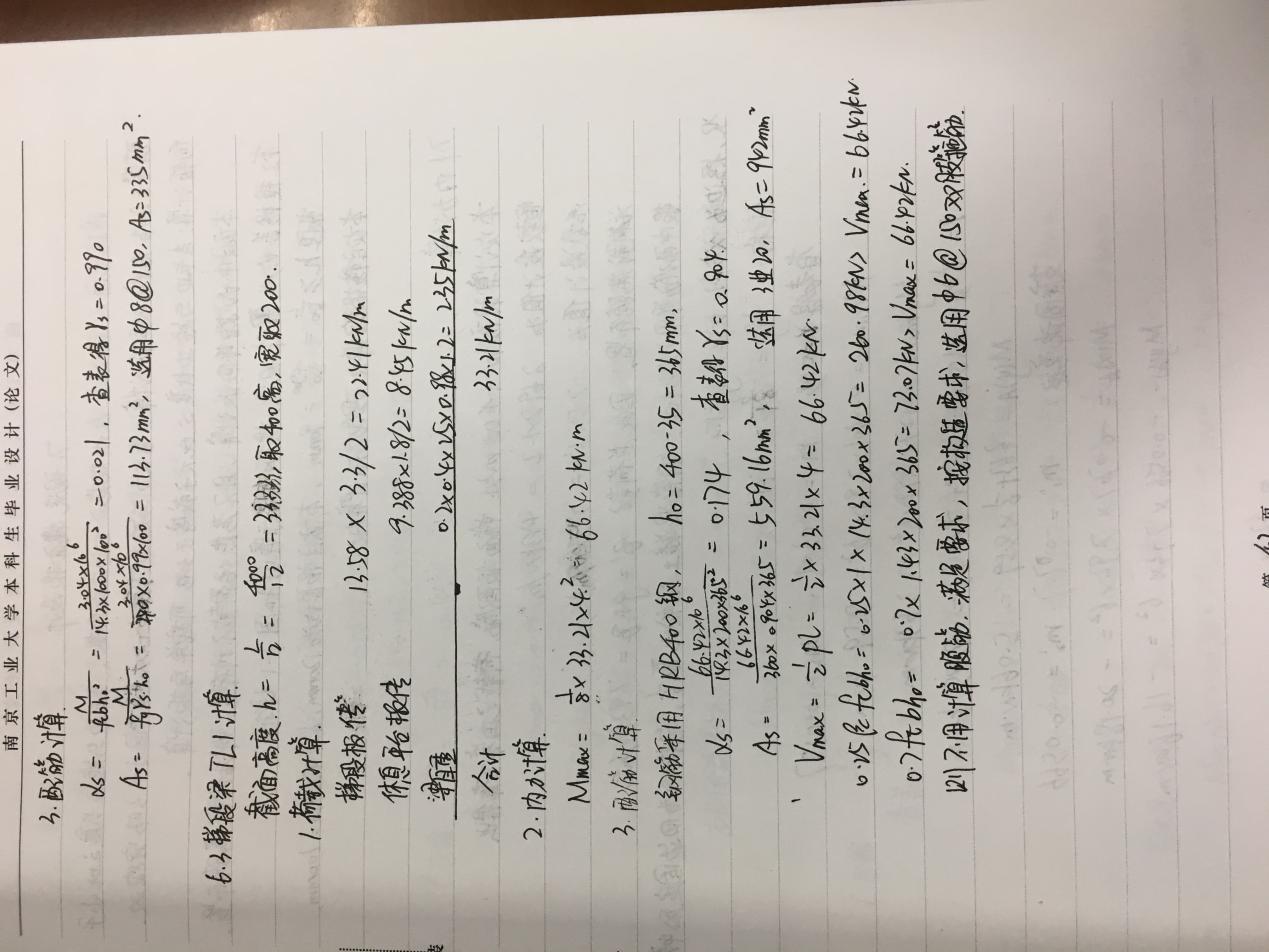 南京工业大学本科生毕业设计(论文)
3.配筋计算.
αs = M/fcbh₀² = 3.04×10⁶/14.3×1000×100² = 0.021, 查表得 γs = 0.990
As = M/fyγsh₀ = 3.04×10⁶/270×0.99×100 = 113.73mm², 选用φ8@150, As=335mm².
6.3 梯段梁TL1计算
截面高度.h = 1/12 = 4000/12 = 333.3, 取400高, 宽取200.
1.荷载计算.
梯段板传 13.58 × 3.3/2 = 22.41kN/m
休息平台板传 9.388×1.8/2 = 8.45kN/m
梁自重 0.2×0.4×25×0.98×1.2 = 2.35kN/m
合计 33.21kN/m
2.内力计算.
Mmax = 1/8 × 33.21×4² = 66.42 kN.m
3.配筋计算
钢筋采用HRB400钢, h₀=400-35=365mm,
αs = 66.42×10⁶/14.3×200×365² = 0.174, 查表得 γs = 0.904.
As = 66.42×10⁶/360×0.904×365 = 559.16mm², 选用3Φ20, As=942mm²
Vmax = 1/2 pl = 1/2 × 33.21×4 = 66.42kN.
0.25βcfcbh₀ = 0.25×1×14.3×200×365 = 260.98kN> Vmax. = 66.42kN.
0.7ftbh₀ = 0.7×1.43×200×365 = 73.07kN> Vmax = 66.42kN.
则不用计算腹筋. 满足要求, 按构造要求, 选用φ6@150双肢箍筋.
第 页